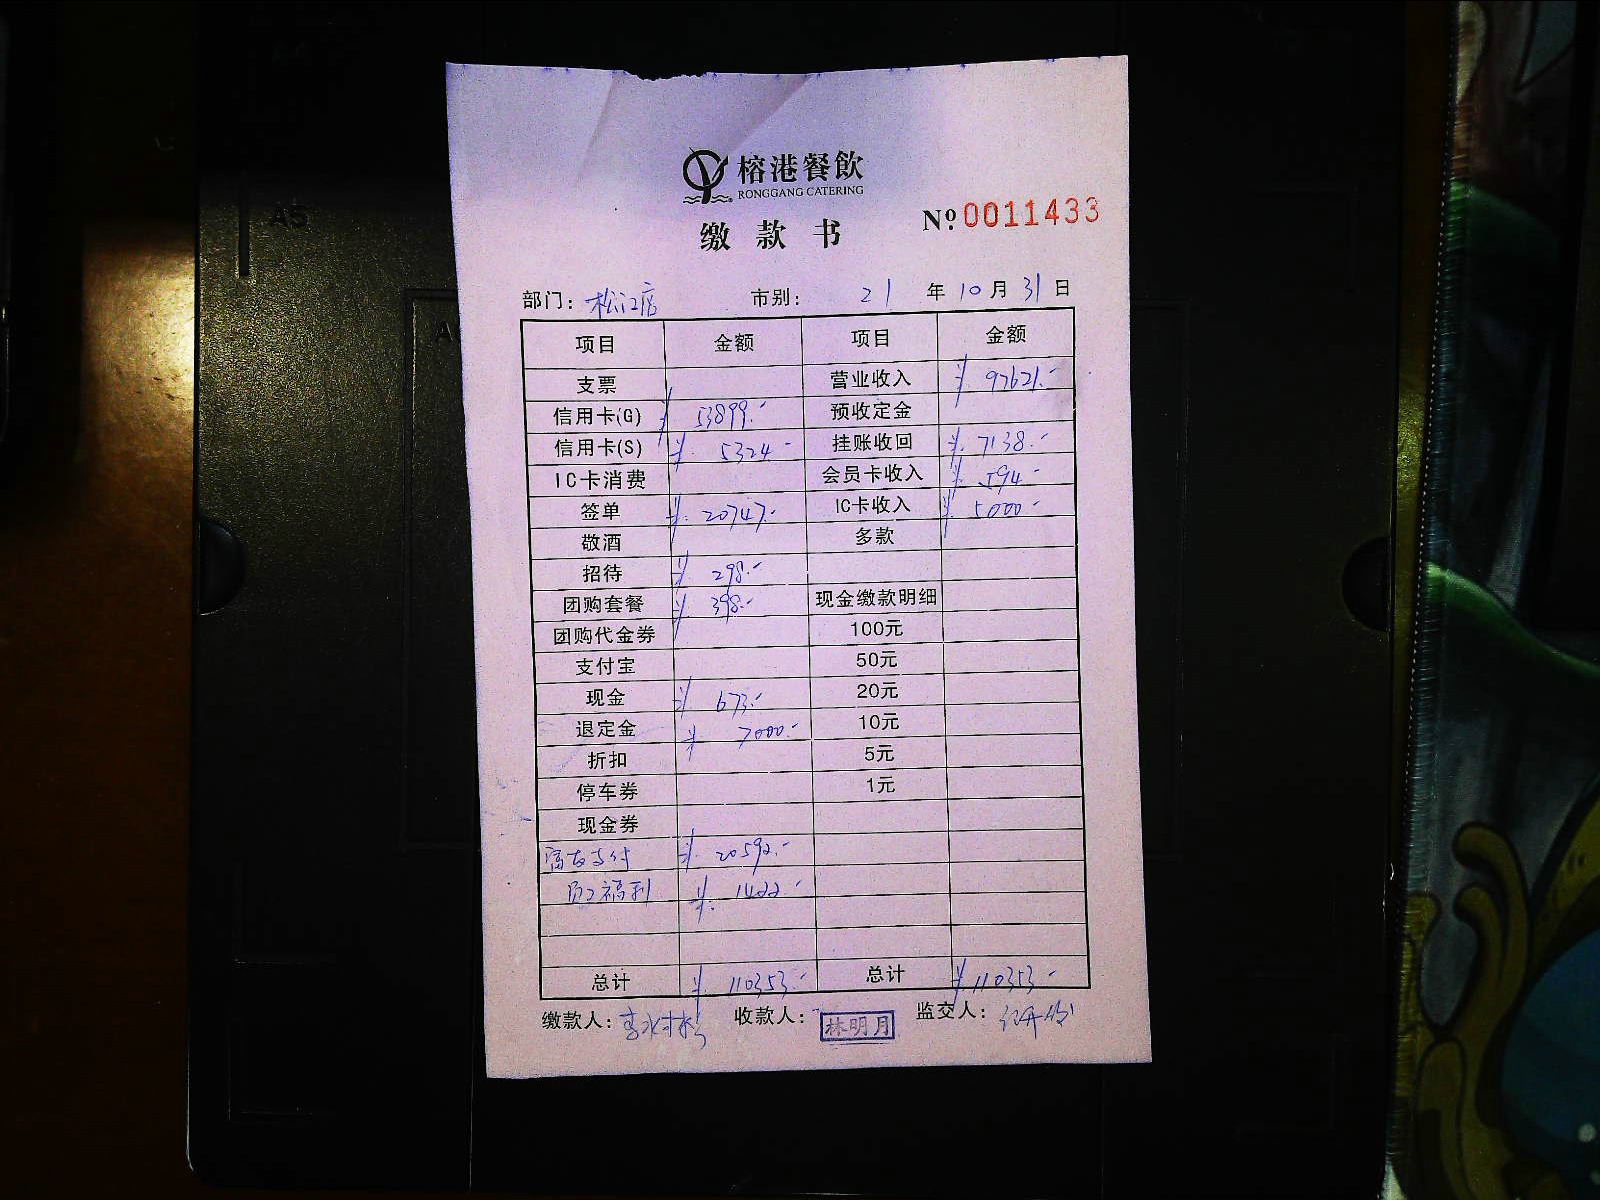 A5
榕港餐飲
RONGGANG CATERING
缴款书
Nº 0011433
部门: 松江店 市别: 21 年 10 月 31 日
项目 金额 项目 金额
支票 营业收入 ¥ 97621.-
信用卡(G) ¥ 53899.- 预收定金
信用卡(S) ¥ 5324- 挂账收回 ¥ 7138.-
IC卡消费 会员卡收入 ¥ 594-
签单 ¥ 20747.- IC卡收入 ¥ 5000-
敬酒 多款
招待 ¥ 298.-
团购套餐 ¥ 398.- 现金缴款明细
团购代金券 100元
支付宝 50元
现金 ¥ 673.- 20元
退定金 ¥ 7000.- 10元
折扣 5元
停车券 1元
现金券
富友支付 ¥ 20592.-
员工福利 ¥ 1422-
总计 ¥ 110353.- 总计 ¥ 110353-
缴款人: 收款人: 林明月 监交人: